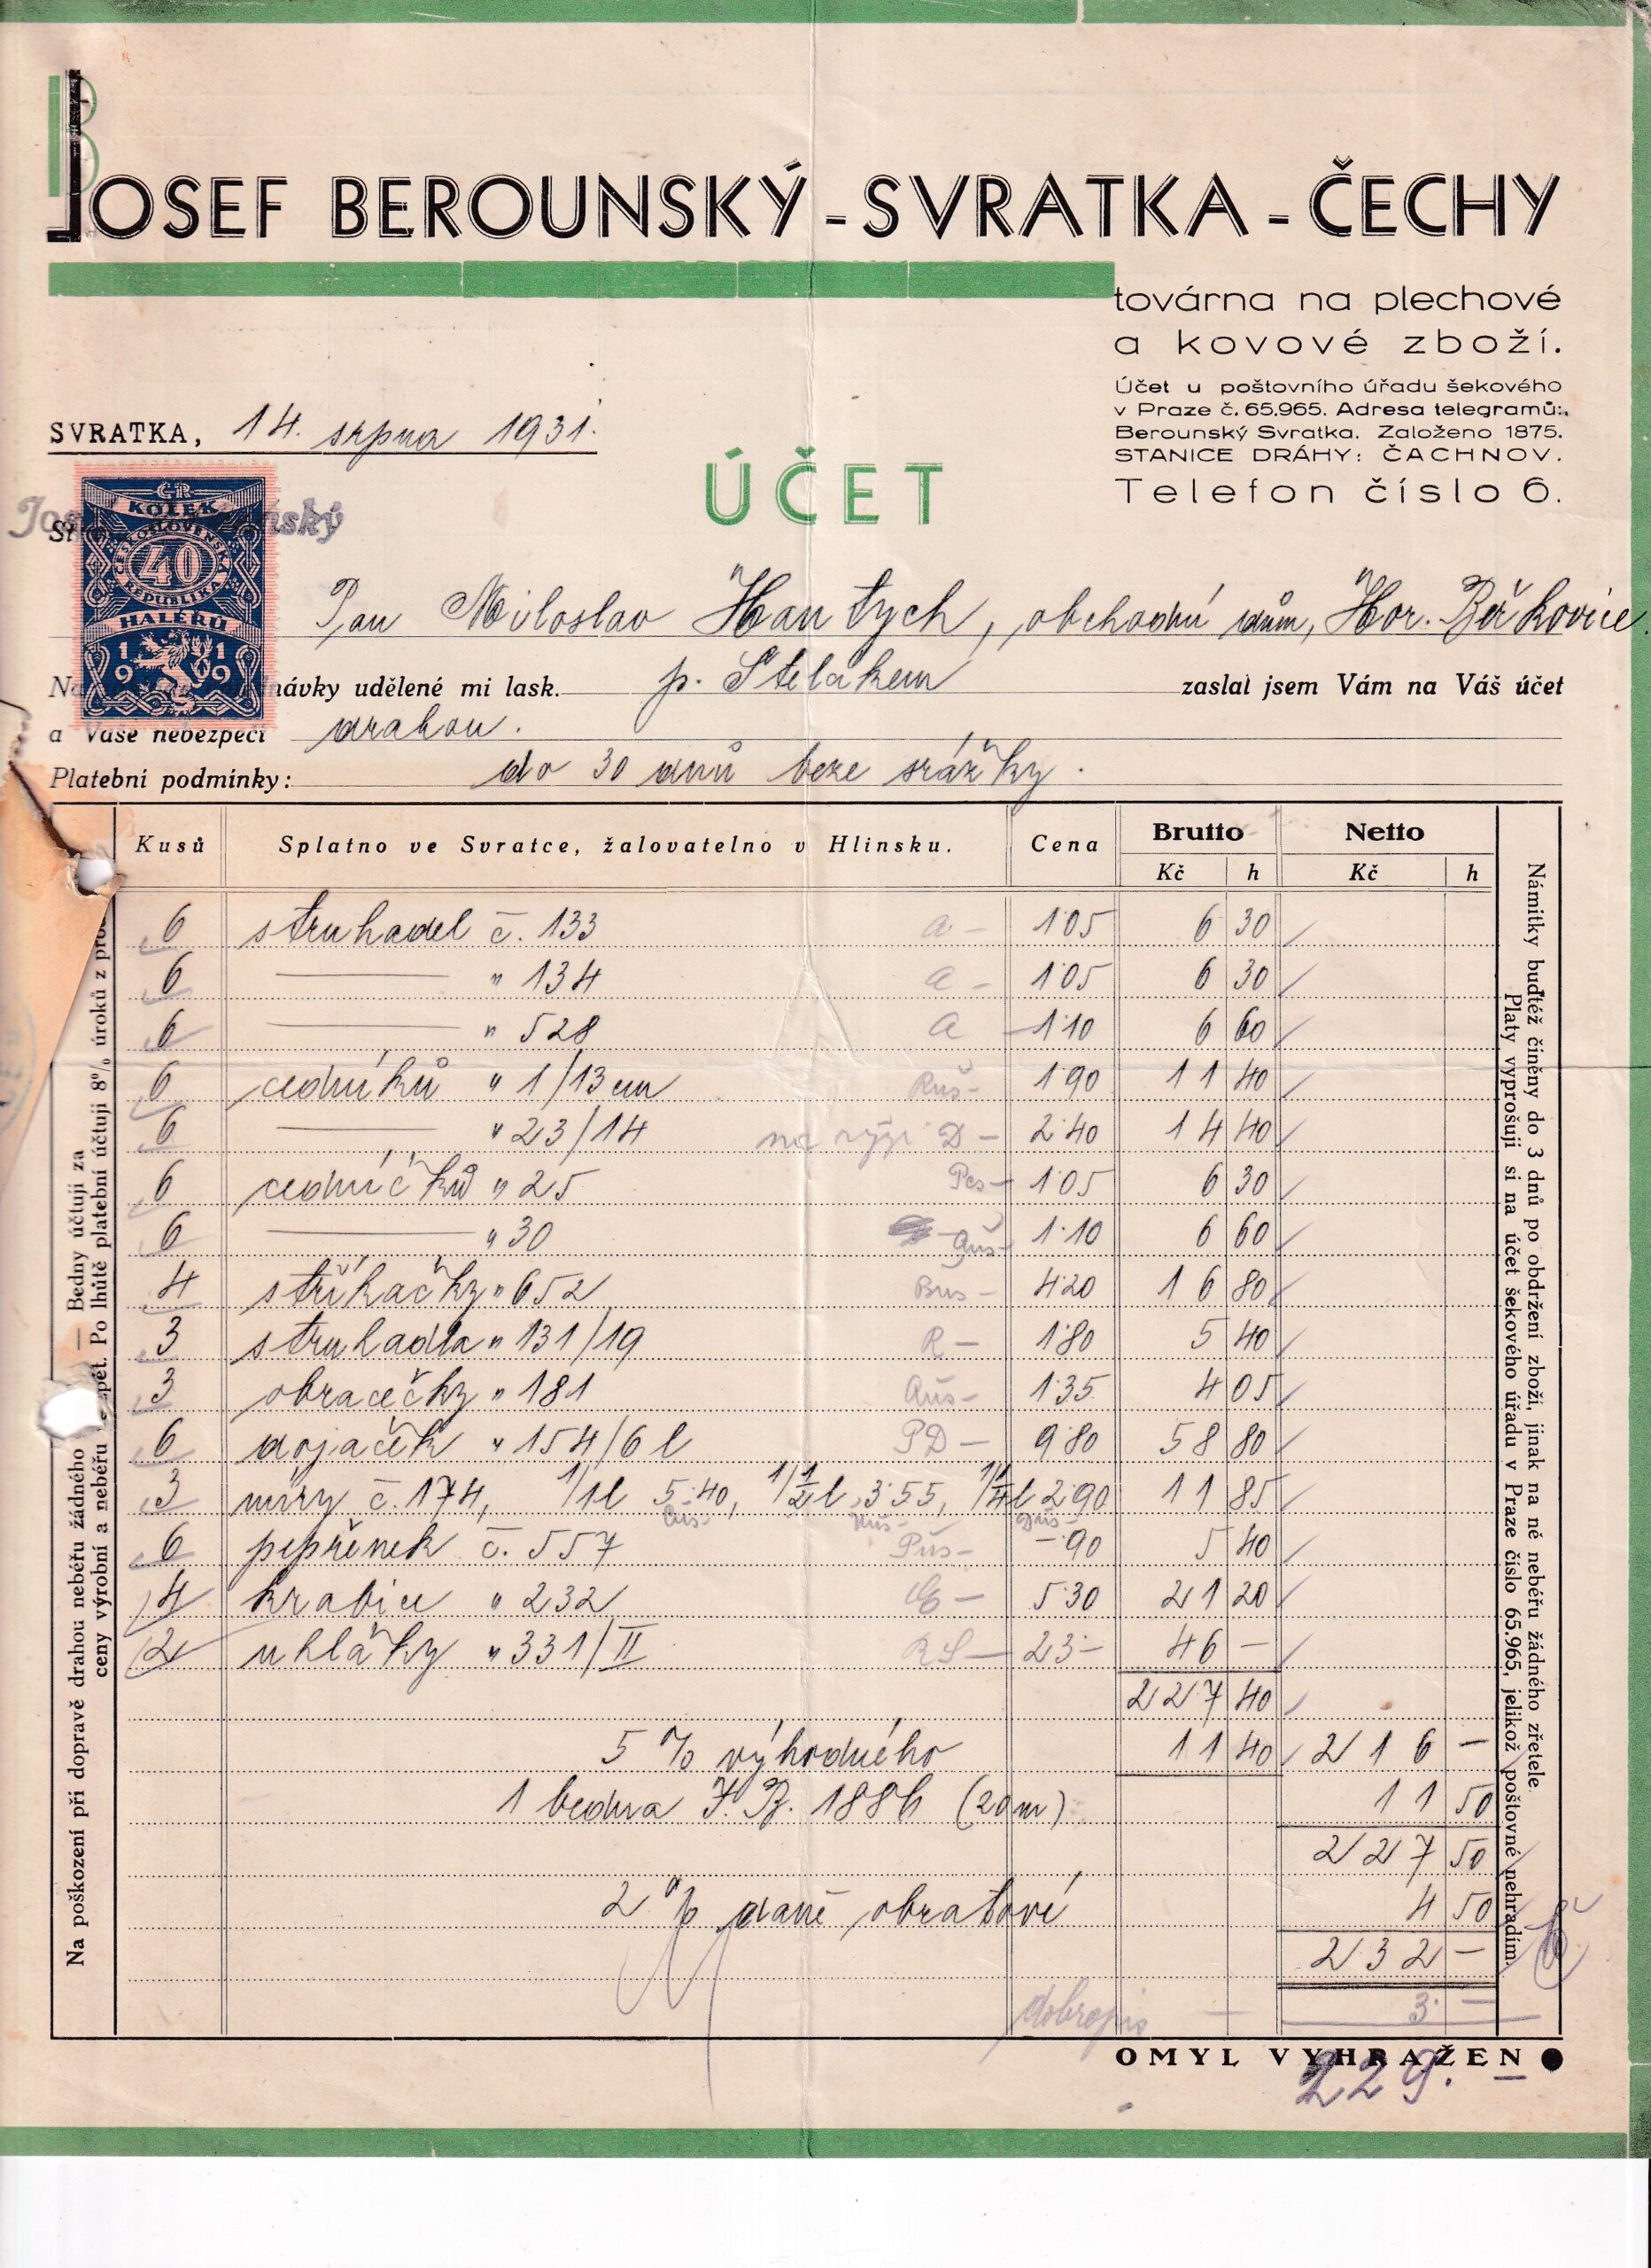 JOSEF BEROUNSKÝ - SVRATKA - ČECHY
továrna na plechové
a kovové zboží.
Účet u poštovního úřadu šekového
v Praze č. 65.965. Adresa telegramů:
Berounský Svratka. Založeno 1875.
STANICE DRÁHY: ČACHNOV.
Telefon číslo 6.
SVRATKA, 14. srpna 1931.
ÚČET
ČR
KOLEK
ČESKOSLOVENSKÁ
40
REPUBLIKA
HALÉŘŮ
1919
Pan Miloslav Hantych, obchodní dům, Hor. Beřkovice
návky udělené mi lask. p. Stelákem zaslal jsem Vám na Váš účet
a Vaše nebezpečí drahou.
Platební podmínky: do 30 dnů beze srážky.
Kusů Splatno ve Svratce, žalovatelno v Hlinsku. Cena Brutto Netto
Kč h Kč h
6 struhadel č. 133 a - 1·05 6 30
6 " 134 a - 1·05 6 30
6 " 528 a - 1·10 6 60
6 cedníků " 1/13 cm Ruš- 1·90 11 40
6 " 23/14 na rýži D - 2·40 14 40
6 cedníčků " 25 Pes- 1·05 6 30
6 " 30 Auš- 1·10 6 60
4 stříkačky " 652 Bus - 4·20 16 80
3 struhadla " 131/19 R - 1·80 5 40
3 obracečky " 181 Auš- 1·35 4 05
6 dojaček " 154/6 l PD - 9·80 58 80
3 míry č. 174, 1/1 l 5·40, 1/2 l 3·55, 1/4 l 2·90 11 85
6 pepřenek č. 557 Pus- -·90 5 40
4 krabice " 232 5·30 21 20
2 uhláky " 331/II RS - 23·- 46 -
227 40
5 % výhodného 11 40 216 -
1 bedna J. B. 1886 (20 m) 11 50
227 50
2 % daně obratové 4 50
232 -
dobropis - 3·-
OMYL VYHRAŽEN
229.-
Na poškození při dopravě drahou neběřu žádného — Bedny účtuji za
ceny výrobní a neběřu zpět. Po lhůtě platební účtuji 8% úroků z pros
Námitky buďtéž činěny do 3 dnů po obdržení zboží, jinak na ně neběřu žádného zřetele.
Platy vyprošuji si na účet šekového úřadu v Praze číslo 65.965, jelikož poštovné nehradím.